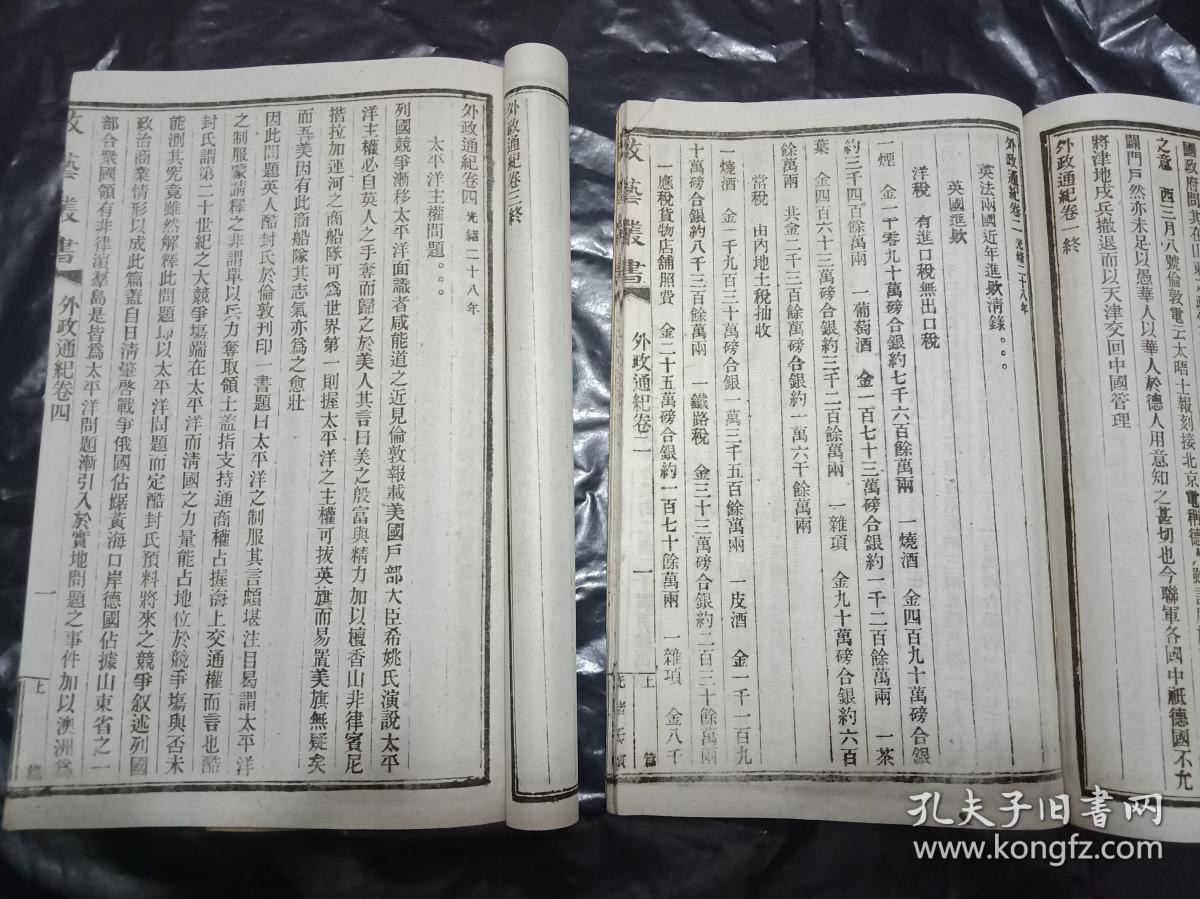 國政府問其在山東
之意　西三月八號倫敦電云太晤士報刻接北京電稱德
闢門戶然亦未足以愚華人以華人於德人用意知之甚切也今聯軍各國中祇德國不允
將津地戌兵撤退而以天津交回中國管理
外政通紀卷一終
外政通紀卷二 光緒二十八年
英法兩國近年進欵清錄。。。
英國進欵
洋稅　有進口稅無出口稅
一煙　金一千零九十萬磅合銀約七千六百餘萬兩　一燒酒　金四百九十萬磅合銀
約三千四百餘萬兩　一葡萄酒　金一百七十三萬磅合銀約一千二百餘萬兩　一茶
葉　金四百六十三萬磅合銀約三千二百餘萬兩　一雜項　金九十萬磅合銀約六百
餘萬兩　共金二千三百餘萬磅合銀約一萬六千餘萬兩
當稅　由內地土稅抽收
一燒酒　金一千九百三十萬磅合銀一萬三千五百餘萬兩　一皮酒　金一千一百九
十萬磅合銀約八千三百餘萬兩　一鐵路稅　金三十三萬磅合銀約二百三十餘萬兩
一應稅貨物店舖照費　金二十五萬磅合銀約一百七十餘萬兩　一雜項　金八千
政藝叢書　外政通紀卷二　一　上　篇
光緒壬寅
外政通紀卷三終
外政通紀卷四 光緒二十八年
太平洋主權問題。。。
列國競爭漸移太平洋面識者咸能道之近見倫敦報載美國戶部大臣希姚氏演說太平
洋主權必自英人之手奪而歸之於美人其言曰美之殷富與精力加以檀香山非律賓尼
揩拉加運河之商船隊可爲世界第一則握太平洋之主權可拔英旗而易置美旗無疑矣
而吾美因有此商船隊其志氣亦爲之愈壯
因此問題英人酷封氏於倫敦刊印一書題曰太平洋之制服其言頗堪注目曷謂太平洋
之制服蒙請釋之非謂單以兵力奪取領土盖指支持通商權占握海上交通權而言也酷
封氏謂第二十世紀之大競爭塲端在太平洋而清國之力量能占地位於競爭塲與否未
能測其究竟雖然解釋此問題以太平洋問題而定酷封氏預料將來之競爭叙述列國
政治商業情形以成此篇蓋自日清肇啓戰爭俄國佔踞黃海口岸德國佔據山東省之一
部合衆國領有非律濱羣島是皆爲太平洋問題漸引入於實地問題之事件加以澳洲爲
政藝叢書　外政通紀卷四　一　上　篇
孔夫子旧书网
www.kongfz.com